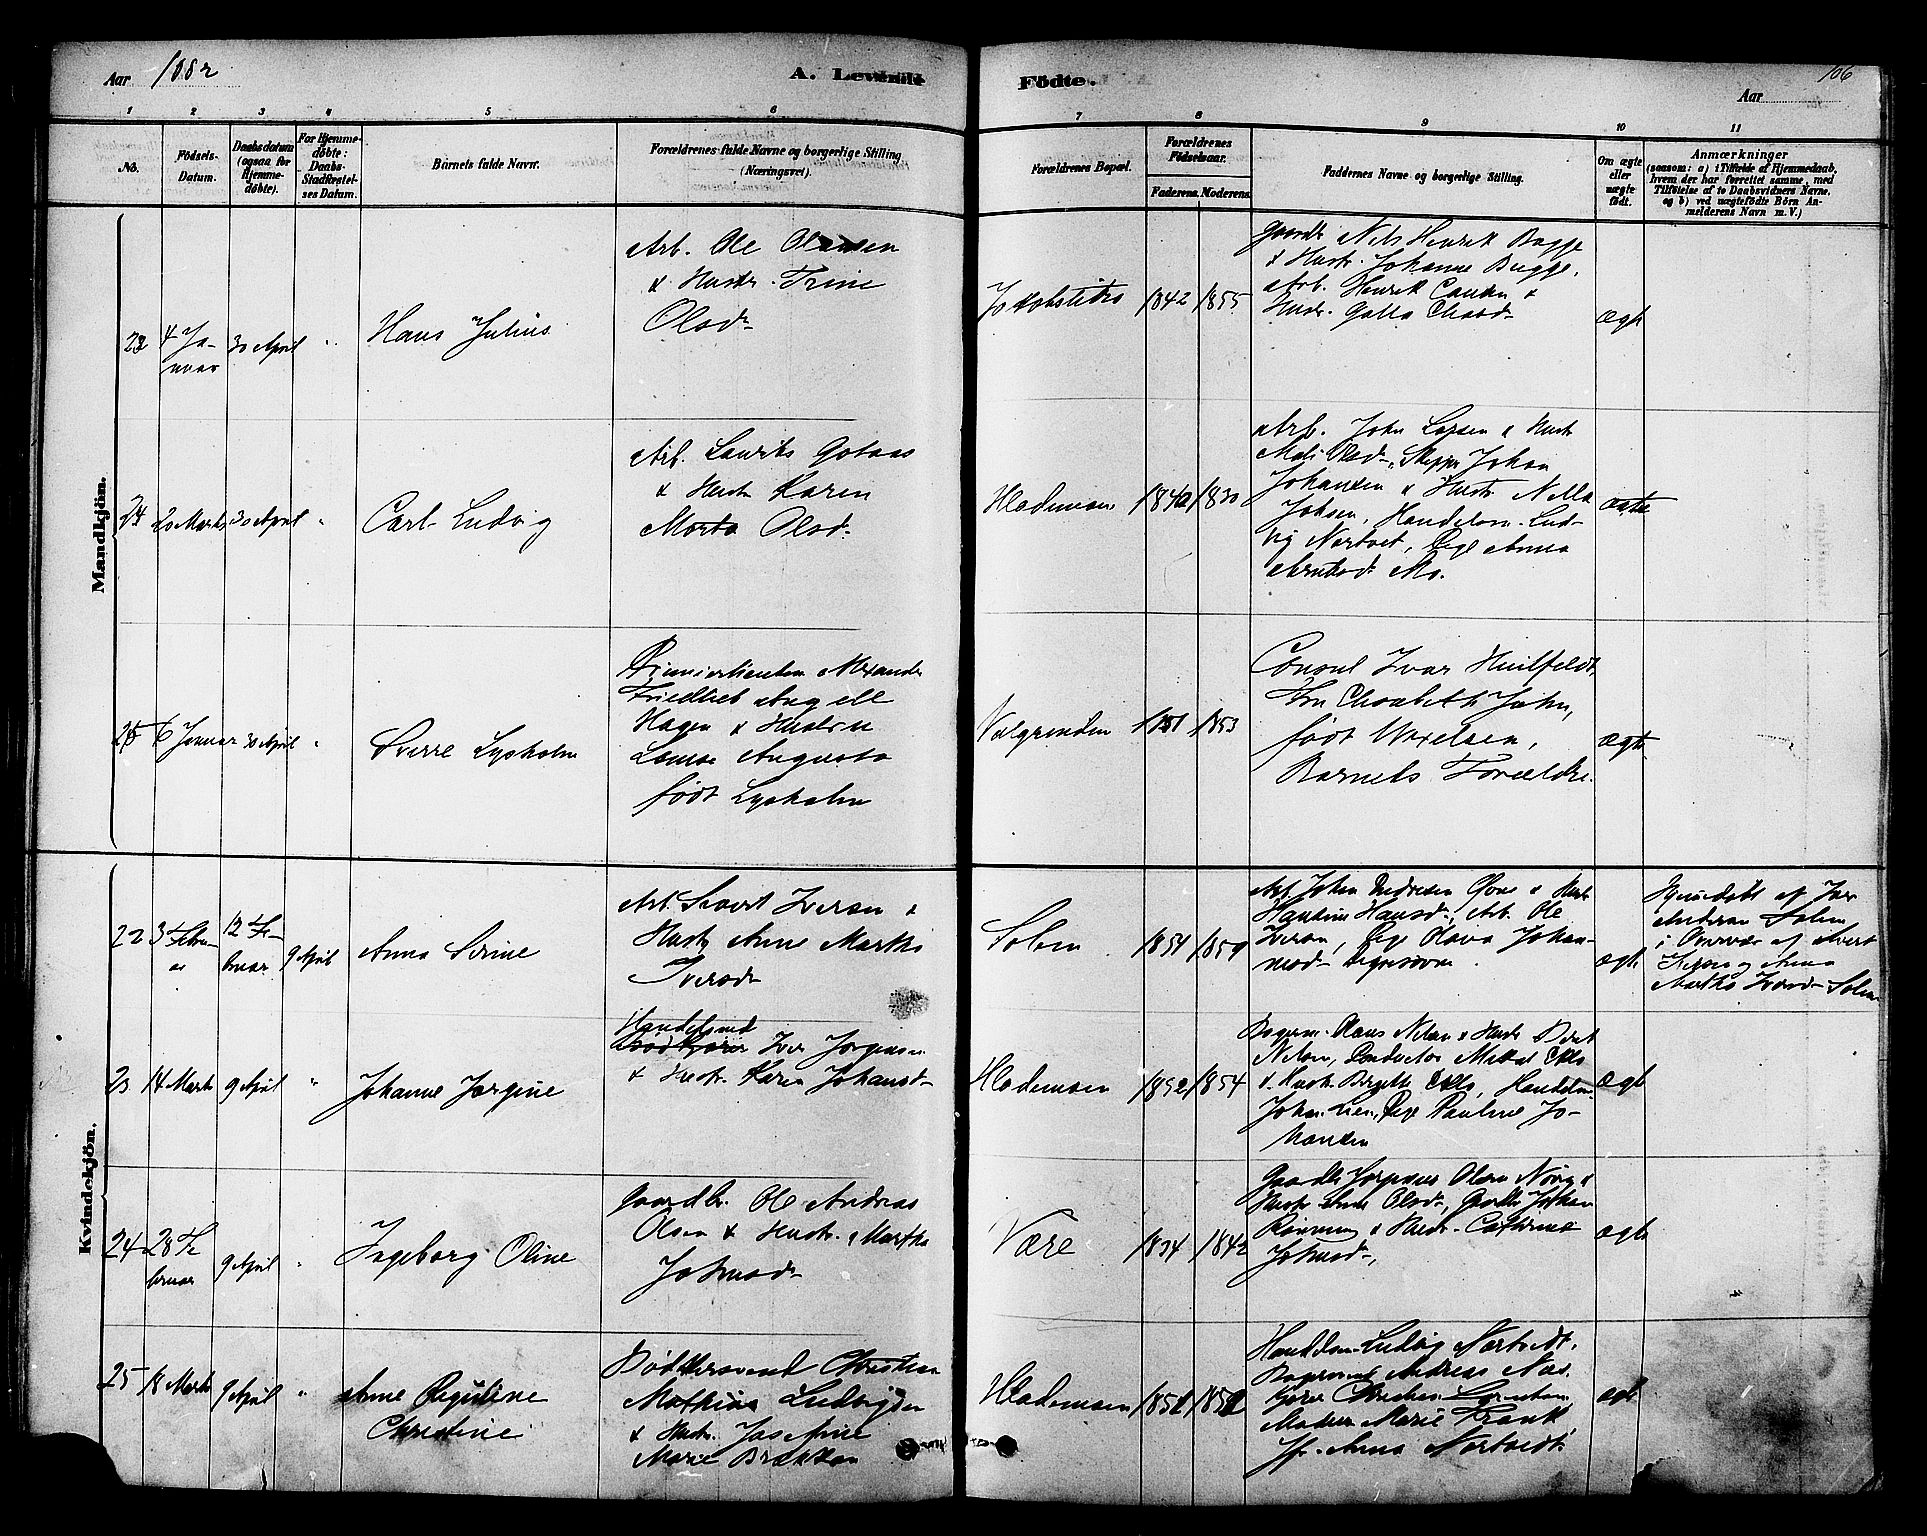 Aar 1882
A. Levende
Födte.
106
Aar
1 2 3 4 5 6 7 8 9 10 11
No.
Födsels-
Datum.
Daabsdatum
(ogsaa for
Hjemme-
döbte).
For Hjemme-
döbte:
Daabs-
Stadfæstel-
ses Datum.
Barnets fulde Navn.
Forældrenes fulde Navne og borgerlige Stilling
(Næringsvei).
Forældrenes Bopæl.
Forældrenes
Födselsaar.
Faderens. Moderens.
Faddernes Navne og borgerlige Stilling.
Om ægte
eller
uægte
födt.
Anmærkninger
(saasom: a) i Tilfælde af Hjemmedaab,
hvem der har forrettet samme, med
Tilföielse af to Daabsvidners Navne,
og b) ved uægtefödte Börn An-
melderens Navn m. V.)
Mandkjön.
23
4 Ja-
nuar
30 April
Hans Julius
Arb. Ole Olausen
& Hustr. Trine
Olsd.
1842 1855
Gaardb. Nels Henrik Bugge
& Hustr. Johanne Bugge,
Arb. Henrik
Hustr.
ægte
24
20 Marts 30 April
Carl Ludvig
Arb. Laurits Gotaas
& Hustr. Karen
Marta Olsd.
Hlademoen
1842 1830
Arb. John Larsen & Hustr.
Mali Olsd., Skipper Johan
Johansen & Hustr. Nella
Johsen, Handelsm. Lud-
vig Nortvet, Pige Anna
Arntsd. Mo.
ægte
25
6 Januar 30 April
Sverre Lysholm
Alexander
Friedlieb Angell
Hagen & Hustru
Louise Augusta
født Lysholm
1851 1853
Consul Ivar Huitfeldt,
Fru Elisabeth Jahn,
født Wexelsen,
Barnets Forældre.
ægte
Kvindekjön.
22
3 Febru-
ar
12 Fe-
bruar
9 April
Anna Sirine
Arb. Sivert Iversen &
Hustr. Anne Martha
Iversd.
Solem
1854 1859
Arb. Johan Andresen & Hustr.
Hansine Hansd., Arb. Ole
Iversen, Pige Olava Johan-
nesd.
ægte
Hjemmedøbt af Iver
Andersen Solem
i Overvær af Sivert
Iversen og Anna
Martha Iversd. Solem
23
14 Marts 9 April
Johanne Jørgine
Handelsmd.
Iver Jørgensen
& Hustr. Karen Johansd.
Hlademoen
1852 1854
Bagerm. Claus Nilsen & Hustr. Beret
Nilsen, Conductør Mikal
& Hustr. Birgitte Handelsm.
Johan Lien, Pige Pauline Jo-
hansen
ægte
24
28 Fe-
bruar
9 April
Ingeborg Oline
Gaardbr. Ole Andreas
Olsen & Hustr. Martha
Johnsd.
Være
1834 1842
Gaardb. Jørgen Olsen
Hustr. Olsd., Gaardb. Johan
Rønning & Hustr. Cathrine
Johnsd.,
ægte
25
18 Marts 9 April
Anne Reguline
Christine
Bødkersvend Christian
Mathias Ludvigsen
& Hustr. Josefine
Marie Brækken
Hlademoen
1851 1852
Handelsm. Ludvig Nortvedt,
Bagersvend Andreas
Madam Marie Frank
Jfr. Anna Nortvedt
ægte